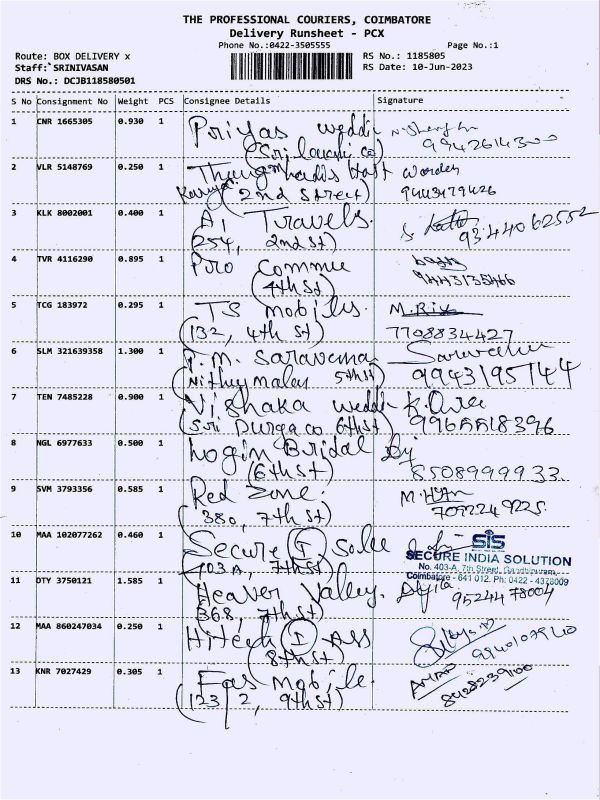 THE PROFESSIONAL COURIERS, COIMBATORE
Delivery Runsheet - PCX
Phone No.:0422-3505555 Page No.:1
Route: BOX DELIVERY x RS No.: 1185805
Staff: SRINIVASAN RS Date: 10-Jun-2023
DRS No.: DCJB118580501
S No Consignment No Weight PCS Consignee Details Signature
1 CNR 1665305 0.930 1 Priyas weddi
2 VLR 5148769 0.250 1 Host Warden
(2nd Street) 9443179426
3 KLK 8002001 0.400 1 A1 Travels.
(254, 2nd St) 9344062552
4 TVR 4116290 0.895 1 Pro Commu
(4th St) 9443135466
5 TCG 183972 0.295 1 TS mobiles.
(132, 4th St) 7708834427
6 SLM 321639358 1.300 1 T.M. Saravana
5th St) 9943195744
7 TEN 7485228 0.900 1 Vishaka weddi
(Sri Durga co 6th St)
8 NGL 6977633 0.500 1 Login Bridal
(6th St) 8508999933
9 SVM 3793356 0.585 1 Red Zone.
(380, 7th St)
10 MAA 102077262 0.460 1 Secure I Solu
(403A, 7th St)
SIS
SECURE INDIA SOLUTION
No. 403-A, 7th Street, Gandhipuram,
Coimbatore - 641 012. Ph: 0422 - 4378009
11 DTY 3750121 1.585 1 Heaven Valley.
(368, 7th St) 9524478004
12 MAA 860247034 0.250 1 Hitech I Ass
(8th St)
13 KNR 7027429 0.305 1 Fas mobile.
(123/2, 9th St) 8428239100